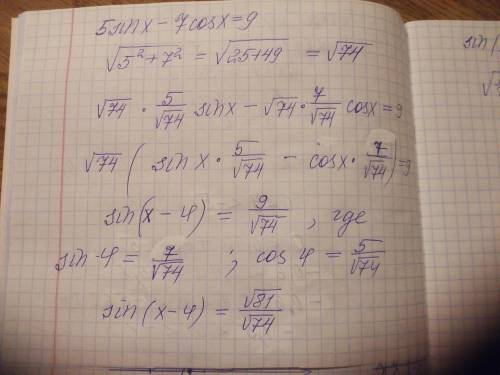 5sinx - 7cosx = 9
√(5²+7²) = √(25+49) = √74
√74 · 5/√74 sinx - √74 · 7/√74 cosx = 9
√74 ( sin x · 5/√74 - cosx · 7/√74 ) = 9
sin(x - φ) = 9/√74 , где
sin φ = 7/√74 ; cos φ = 5/√74
sin (x - φ) = √81/√74